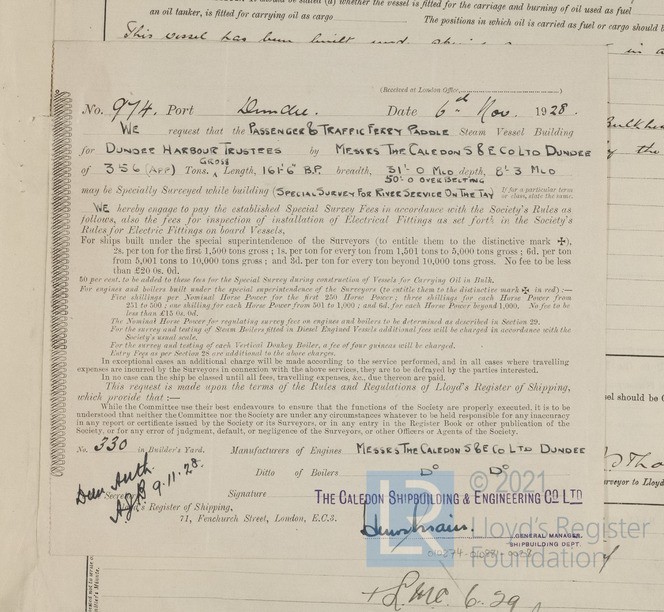 it should be stated (a) whether the vessel is fitted for the carriage and burning of oil used as fuel
an oil tanker, is fitted for carrying oil as cargo The positions in which oil is carried as fuel or cargo should b
This vessel has been built und
(Received at London Office,
No. 974. Port Dundee. Date 6th Nov. 1928.
WE request that the PASSENGER & TRAFFIC FERRY PADDLE Steam Vessel Building
for DUNDEE HARBOUR TRUSTEES by MESSRS THE CALEDON S & E CO LTD DUNDEE
of 356 (APP) GROSS Tons. Length, 161'6" B.P. breadth, 31'-0 MLD depth, 8'-3 MLD
50'-0 OVER BELTING
may be Specially Surveyed while building (SPECIAL SURVEY FOR RIVER SERVICE ON THE TAY) If for a particular term or class, state the same.
WE hereby engage to pay the established Special Survey Fees in accordance with the Society's Rules as
follows, also the fees for inspection of installation of Electrical Fittings as set forth in the Society's
Rules for Electric Fittings on board Vessels,
For ships built under the special superintendence of the Surveyors (to entitle them to the distinctive mark ✠),
2s. per ton for the first 1,500 tons gross; 1s. per ton for every ton from 1,501 to 5,000 tons gross; 6d. per ton
from 5,001 to 10,000 tons gross; and 3d. per ton for every ton beyond 10,000 tons gross. No fee to be less
than £20 0s. 0d.
50 per cent. to be added to these fees for the Special Survey during construction of Vessels for Carrying Oil in Bulk.
For engines and boilers built under the special superintendence of the Surveyors (to entitle them to the distinctive mark ✠ in red) :—
Five shillings per Nominal Horse Power for the first 250 Horse Power; three shillings for each Horse Power from
251 to 500; one shilling for each Horse Power from 501 to 1,000; and 6d. for each Horse Power beyond 1,000. No fee to be
less than £15 0s. 0d.
The Nominal Horse Power for regulating survey fee on engines and boilers to be determined as described in Section 29.
For the survey and testing of Steam Boilers fitted in Diesel Engined Vessels additional fees will be charged in accordance with the
Society's usual scale.
For the survey and testing of each Vertical Donkey Boiler, a fee of four guineas will be charged.
Entry Fees as per Section 28 are additional to the above charges.
In exceptional cases an additional charge will be made according to the service performed, and in all cases where travelling
expenses are incurred by the Surveyors in connection with the above services, they are to be defrayed by the parties interested.
In no case can the ship be classed until all fees, travelling expenses, &c., due thereon are paid.
This request is made upon the terms of the Rules and Regulations of Lloyd's Register of Shipping,
which provide that :—
While the Committee use their best endeavours to ensure that the functions of the Society are properly executed, it is to be
understood that neither the Committee nor the Society are under any circumstances whatever to be held responsible for any inaccuracy
in any report or certificate issued by the Society or its Surveyors, or in any entry in the Register Book or other publication of the
Society, or for any error of judgment, default, or negligence of the Surveyors, or other Officers or Agents of the Society.
No. 330 in Builder's Yard. Manufacturers of Engines MESSRS THE CALEDON S & E CO LTD DUNDEE
Ditto of Boilers Do Do
9.11.28.
Signature THE CALEDON SHIPBUILDING & ENGINEERING CO LTD
Register of Shipping,
71, Fenchurch Street, London, E.C.3.
GENERAL MANAGER.
SHIPBUILDING DEPT.
© 2021
LR Lloyd's Register
Foundation
+ LMC 6.29